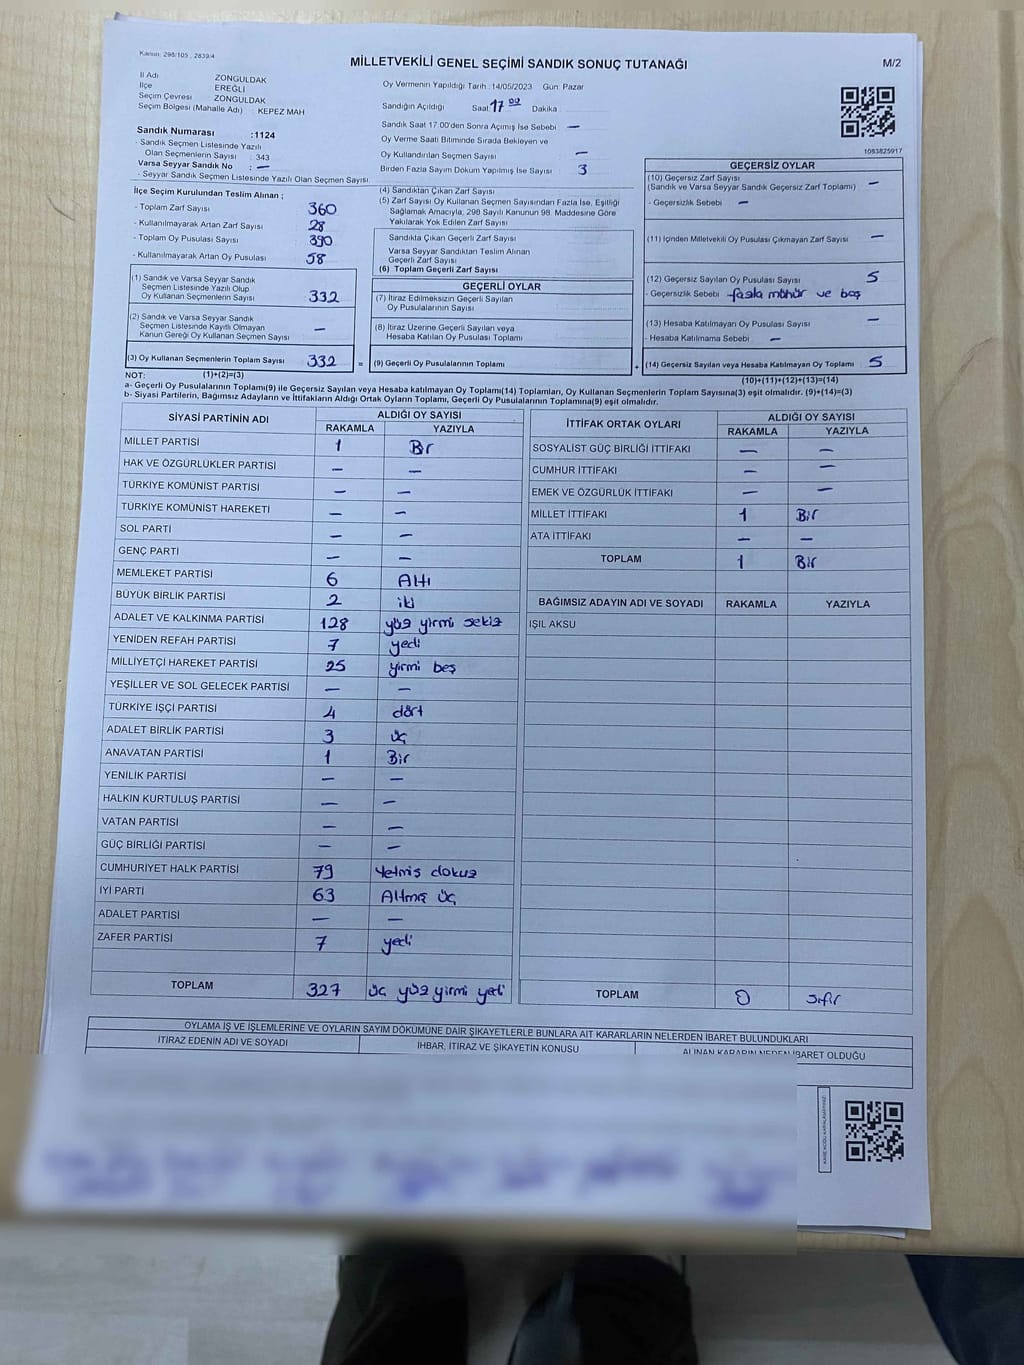 Kanun: 298/105 , 2839/4
MİLLETVEKİLİ GENEL SEÇİMİ SANDIK SONUÇ TUTANAĞI
M/2
İl Adı : ZONGULDAK
İlçe : EREĞLİ
Seçim Çevresi : ZONGULDAK
Seçim Bölgesi (Mahalle Adı) : KEPEZ MAH
Sandık Numarası :1124
- Sandık Seçmen Listesinde Yazılı
Olan Seçmenlerin Sayısı : 343
Varsa Seyyar Sandık No : —
- Seyyar Sandık Seçmen Listesinde Yazılı Olan Seçmen Sayısı
Oy Vermenin Yapıldığı Tarih :14/05/2023 Gün: Pazar
Sandığın Açıldığı Saat 17 00 Dakika
Sandık Saat 17:00'den Sonra Açımış İse Sebebi —
Oy Verme Saati Bitiminde Sırada Bekleyen ve
Oy Kullandırılan Seçmen Sayısı —
Birden Fazla Sayım Döküm Yapılmış İse Sayısı 3
1083825917
İlçe Seçim Kurulundan Teslim Alınan ;
- Toplam Zarf Sayısı 360
- Kullanılmayarak Artan Zarf Sayısı 28
- Toplam Oy Pusulası Sayısı 390
- Kullanılmayarak Artan Oy Pusulası 58
(1) Sandık ve Varsa Seyyar Sandık
Seçmen Listesinde Yazılı Olup
Oy Kullanan Seçmenlerin Sayısı 332
(2) Sandık ve Varsa Seyyar Sandık
Seçmen Listesinde Kayıtlı Olmayan
Kanun Gereği Oy Kullanan Seçmen Sayısı —
(3) Oy Kullanan Seçmenlerin Toplam Sayısı 332
(4) Sandıktan Çıkan Zarf Sayısı
(5) Zarf Sayısı Oy Kullanan Seçmen Sayısından Fazla İse, Eşitliği
Sağlamak Amacıyla, 298 Sayılı Kanunun 98. Maddesine Göre
Yakılarak Yok Edilen Zarf Sayısı
Sandıkta Çıkan Geçerli Zarf Sayısı
Varsa Seyyar Sandıktan Teslim Alınan
Geçerli Zarf Sayısı
(6) Toplam Geçerli Zarf Sayısı
GEÇERLİ OYLAR
(7) İtiraz Edilmeksizin Geçerli Sayılan
Oy Pusulalarının Sayısı
(8) İtiraz Üzerine Geçerli Sayılan veya
Hesaba Katılan Oy Pusulası Toplamı
= (9) Geçerli Oy Pusulalarının Toplamı
GEÇERSİZ OYLAR
(10) Geçersiz Zarf Sayısı
(Sandık ve Varsa Seyyar Sandık Geçersiz Zarf Toplamı) —
- Geçersizlik Sebebi —
(11) İçinden Milletvekili Oy Pusulası Çıkmayan Zarf Sayısı —
(12) Geçersiz Sayılan Oy Pusulası Sayısı 5
- Geçersizlik Sebebi fazla mühür ve boş
(13) Hesaba Katılmayan Oy Pusulası Sayısı —
- Hesaba Katılmama Sebebi —
+ (14) Geçersiz Sayılan veya Hesaba Katılmayan Oy Toplamı 5
NOT: (1)+(2)=(3) (10)+(11)+(12)+(13)=(14)
a- Geçerli Oy Pusulalarının Toplamı(9) ile Geçersiz Sayılan veya Hesaba katılmayan Oy Toplamı(14) Toplamları, Oy Kullanan Seçmenlerin Toplam Sayısına(3) eşit olmalıdır. (9)+(14)=(3)
b- Siyasi Partilerin, Bağımsız Adayların ve İttifakların Aldığı Ortak Oyların Toplamı, Geçerli Oy Pusulalarının Toplamına(9) eşit olmalıdır.
SİYASİ PARTİNİN ADI ALDIĞI OY SAYISI
RAKAMLA YAZIYLA
MİLLET PARTİSİ 1 Bir
HAK VE ÖZGÜRLÜKLER PARTİSİ — —
TÜRKİYE KOMÜNİST PARTİSİ — —
TÜRKİYE KOMÜNİST HAREKETİ — —
SOL PARTİ — —
GENÇ PARTİ — —
MEMLEKET PARTİSİ 6 Altı
BÜYÜK BİRLİK PARTİSİ 2 iki
ADALET VE KALKINMA PARTİSİ 128 yüz yirmi sekiz
YENİDEN REFAH PARTİSİ 7 yedi
MİLLİYETÇİ HAREKET PARTİSİ 25 yirmi beş
YEŞİLLER VE SOL GELECEK PARTİSİ — —
TÜRKİYE İŞÇİ PARTİSİ 4 dört
ADALET BİRLİK PARTİSİ 3 üç
ANAVATAN PARTİSİ 1 Bir
YENİLİK PARTİSİ — —
HALKIN KURTULUŞ PARTİSİ — —
VATAN PARTİSİ — —
GÜÇ BİRLİĞİ PARTİSİ — —
CUMHURİYET HALK PARTİSİ 79 Yetmiş dokuz
İYİ PARTİ 63 Altmış üç
ADALET PARTİSİ — —
ZAFER PARTİSİ 7 yedi
TOPLAM 327 üç yüz yirmi yedi
İTTİFAK ORTAK OYLARI ALDIĞI OY SAYISI
RAKAMLA YAZIYLA
SOSYALİST GÜÇ BİRLİĞİ İTTİFAKI — —
CUMHUR İTTİFAKI — —
EMEK VE ÖZGÜRLÜK İTTİFAKI — —
MİLLET İTTİFAKI 1 Bir
ATA İTTİFAKI — —
TOPLAM 1 Bir
BAĞIMSIZ ADAYIN ADI VE SOYADI RAKAMLA YAZIYLA
IŞIL AKSU
TOPLAM 0 sıfır
OYLAMA İŞ VE İŞLEMLERİNE VE OYLARIN SAYIM DÖKÜMÜNE DAİR ŞİKAYETLERLE BUNLARA AİT KARARLARIN NELERDEN İBARET BULUNDUKLARI
İTİRAZ EDENİN ADI VE SOYADI
İHBAR, İTİRAZ VE ŞİKAYETİN KONUSU
ALINAN KARARIN NEDEN İBARET OLDUĞU